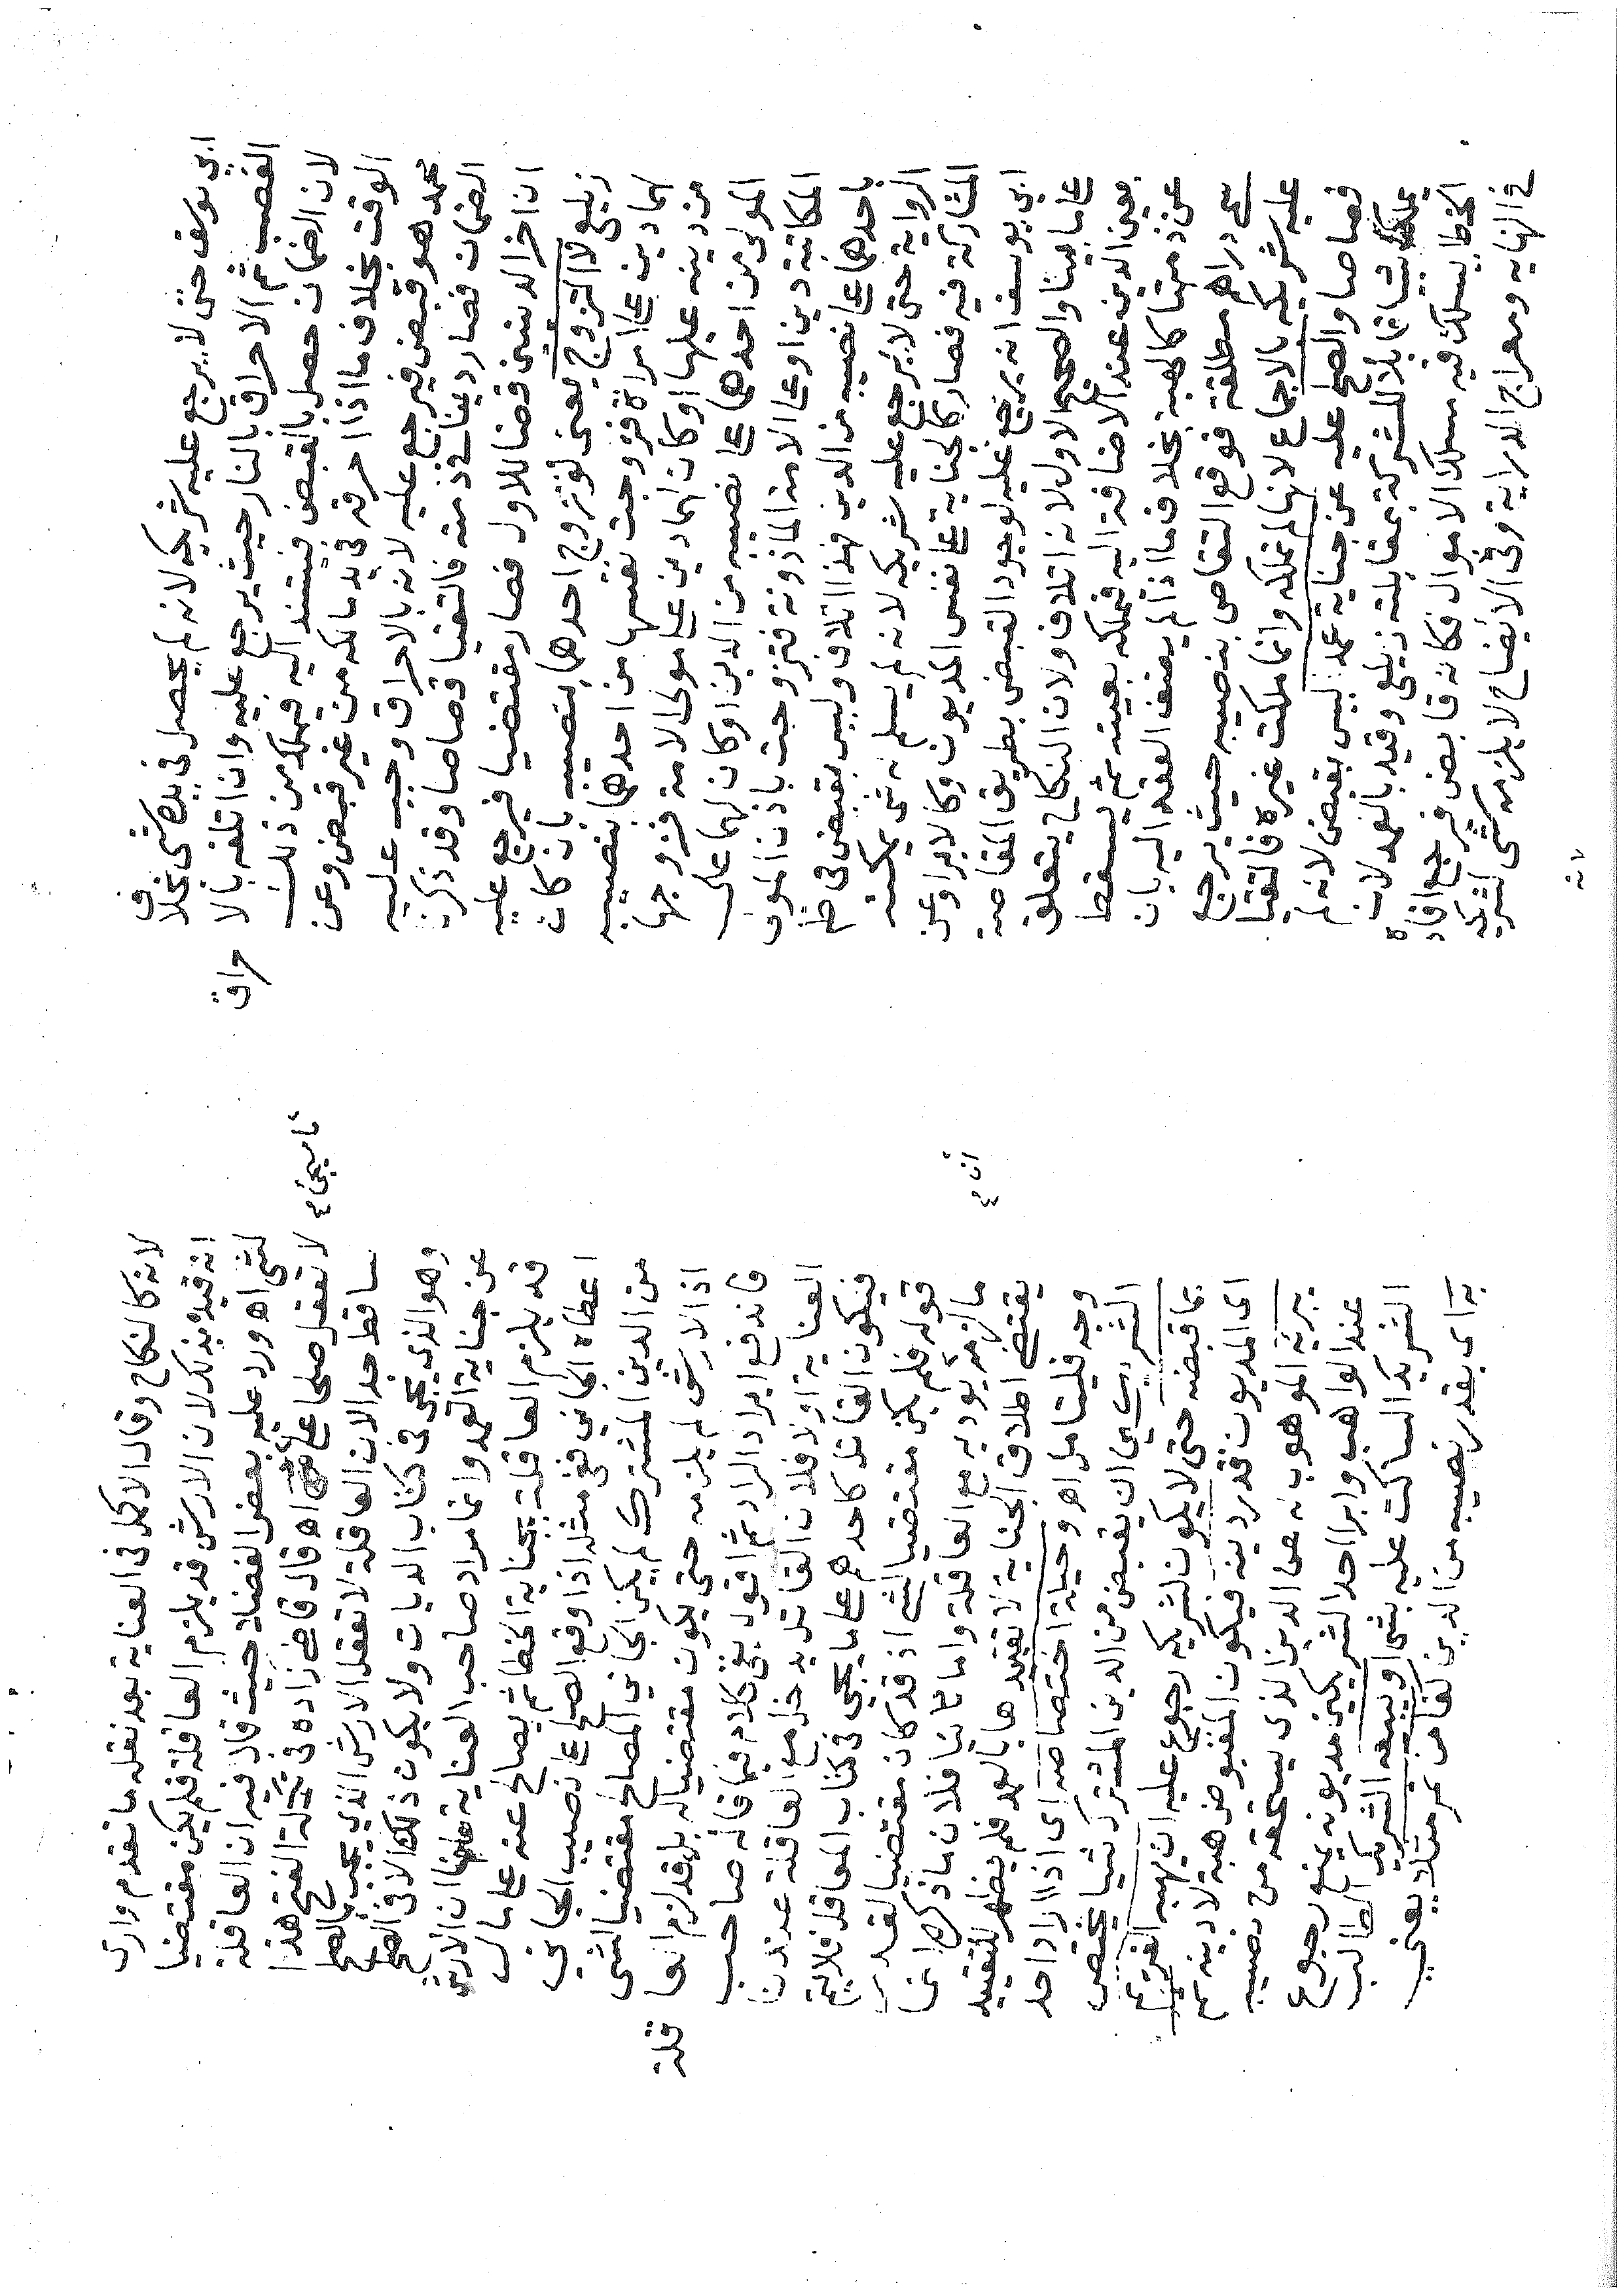 ابي يوسف حتى لا يرجع عليه شريكه لانه لم يحصل في يده شى بخلاف
الغصب ثم الاحراق بالنار حيث يرجع عليه وان اتلفه بالا
حراق
لان الضمان حصل بالقبض فيستند اليه فيملكه من ذلك
الوقت بخلاف ما اذا احرقه في يد مالكه من غير قبض وعن
محمد هو قبض فيرجع عليه لانه بالاحراق وجب عليه
الضمان فصار دينا في ذمته فالتقيا قصاصا وقد ذكرنا
ان اخر الدينين قضا للاول فصار مقتضيا فيرجع عليه
زيلعي لا التزوج يعنى لو تزوج احدهما بنصيبه بان كان
لهما دين على امراة فزوجت نفسها من احدهما بنصيبه
من دينه عليها او كان لهما دين على مولى الامة فزوجها
المولى من احدهما على نصيبه من الدين او كان لهما على
المكاتبة دين او على الامة الماذونة فتزوجت باذن المولى
باحدهما على نصيبه من الدين فهذا اتلاف وليس بقبض في ظا
الرواية حتى لا يرجع عليه شريكه لانه لم يسلم له شى يمكنه
المشاركة فيه فصار كالجناية على نفس المديون وكالابرا وعن
ابي يوسف انه يرجع عليه لوجود القبض بطريق المقاصة
على ما بينا والصحيح الاول لانه اتلاف ولان النكاح يتعلق
بعين الدين عند الاضافة اليه فيملكه بعينه ثم يسقط
عن ذمتها كالهبة بخلاف ما اذا لم يضف العقد اليه بان
سمى دراهم مطلقة فوقع التقاص بنصيبه حيث يرجع
عليه شريكه بالاجماع لانها لم تملكه وانما ملكت غيره فالتقيا
قصاصا والصلح عليه عن جناية عمد ليس بقبض لانه لم
يملك شيا قابلا للشركة بمقابلته زيلعي وقيد بالعمد لان
الخطا يسلك فيه مسلك الاموال فكانه قابض فيرجع افاده
في النهايه ومعراج الدراية وفي الايضاح لا يلزمه شى لشريكه
لانه
لانه كالنكاح وقال الاكمل في العناية بعد نقله ما تقدم وارى
انه قيد بذلك لان الارش قد يلزم العاقلة فلم يكن مقتضيا
لشى اهـ ورد عليه بعض الفضلا حيث قال فيه ان العاقلة
لا تعقل صلحا على شى اهـ قال قاضي زاده في تكملة الفتح هذا
ساقط جدا لان العاقلة لا تعقل الارش الذي يجب بالصلح
وهو الذي يجى في كتاب الديات ولا يكون ذلك الا في الصلح
عن جناية العمد وانما مراد صاحب العناية هاهنا ان الارش
قد يلزم العاقلة بجناية الخطا ثم يصالح عنه على مال
اعطاه الجاني ففي مثل اذا وقع الصلح على نصيب الجاني
من الدين المشترك لم يكن الجاني المصالح مقتضيا لشى
اذ الارش لم يلزمه حتى يكون مقتضيا له بل قد لزم العا
قلة
فاندفع ايراد الراد ثم اقول بقى كلام فيما قاله صاحب
العناية اولا فلان القاتل يدخل مع العاقلة عندنا
فيكون القاتل كاحدهم على ما يجى في كتاب المعاقل فلا يتم
قوله فلم يكن مقتضيا لشى اذ قد كان مقتضيا لقدر
ما لزمه يوديه مع العاقلة واما ثانيا فلان ما ذكره انما
يقتضي اطلاق الجناية لا تقييدها بالعمد فلم يظهر للتقييد
وجه فليتامل اهـ وحيلة اختصاصه اى اذا اراد احد
الشريكين ان يقبض من الدين المشترك شيا يختص
بما قبضه حتى لا يكون لشريكه رجوع عليه ان يهبه الغريم
اى المديون قدر دينه فيكون المقبوض هبة لا دينه ثم
يبرئه الموهوب له عن الدين الذى يستحقه من نصيبه
عند الواهب وابرا احد الشريكين مديونه يمنع رجوع
الشريك الساكت عليه بشى او يبيعه الشريك الطالب
به اى بقدر نصيبه من الدين كفا من تمر مثلا يعني